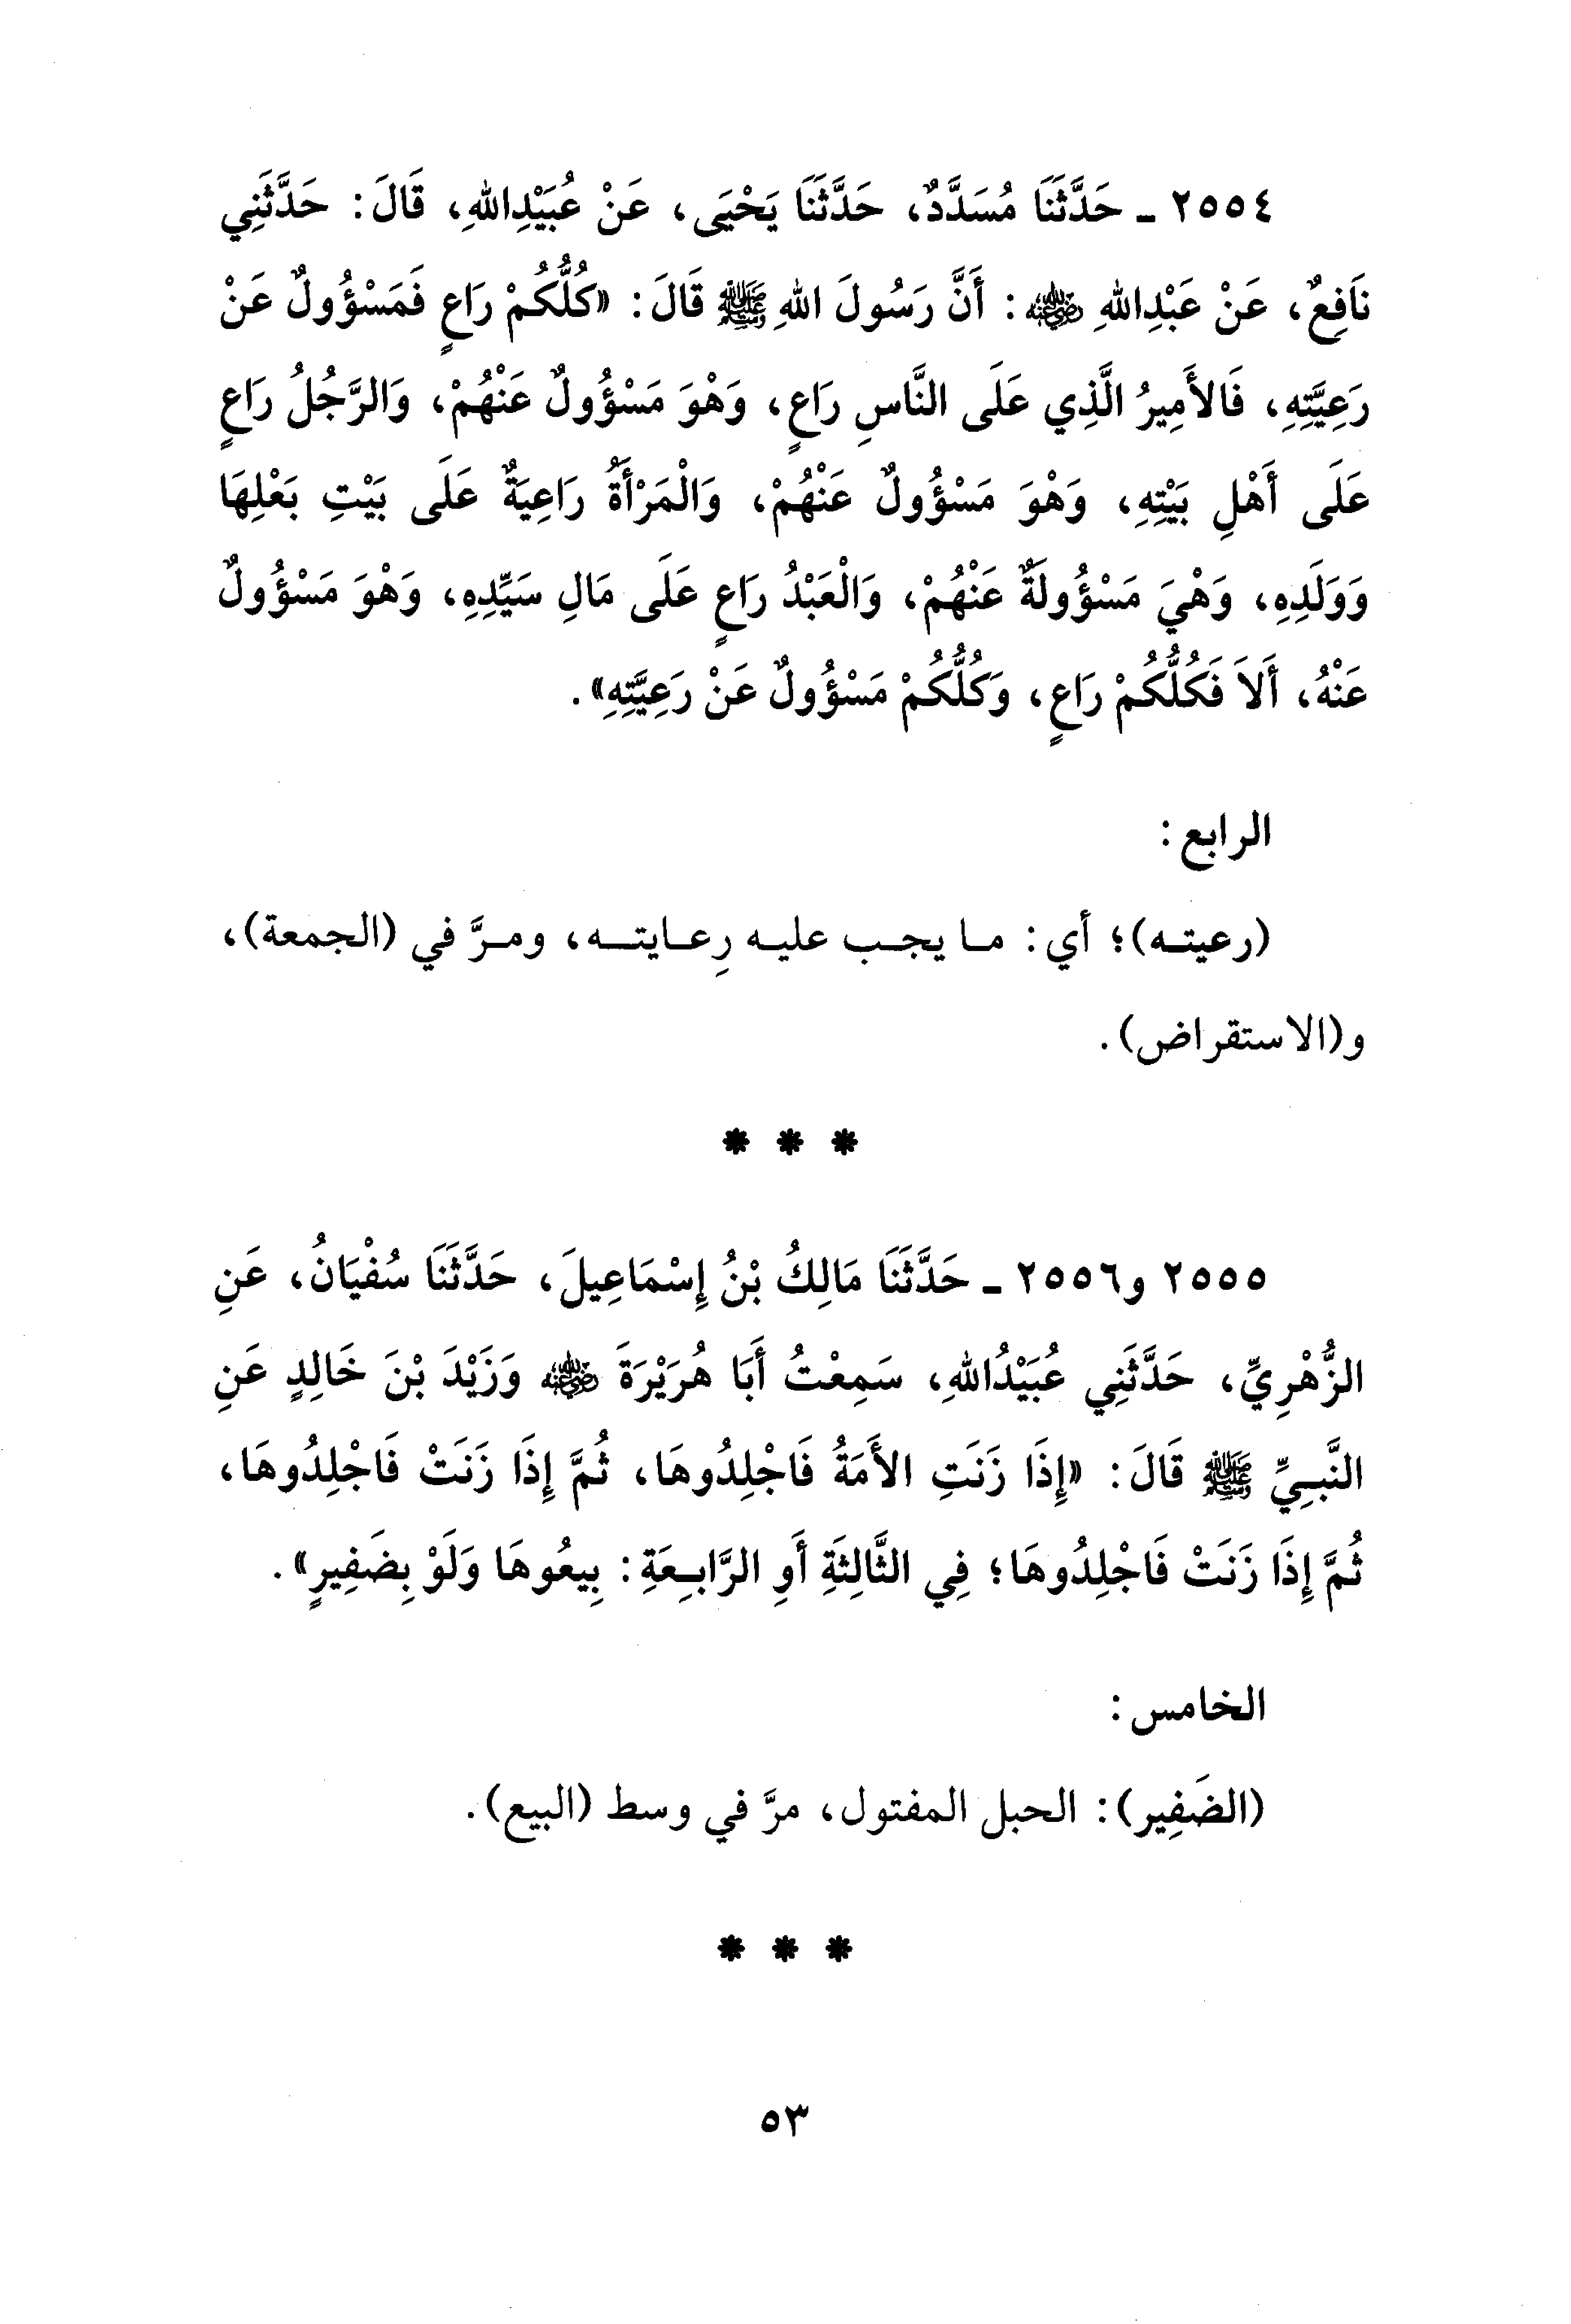 ٢٥٥٤ ـ حَدَّثَنَا مُسَدَّدٌ، حَدَّثَنَا يَحْيَى، عَنْ عُبَيْدِاللهِ، قَالَ: حَدَّثَنِي
نَافِعٌ، عَنْ عَبْدِاللهِ ﵁: أَنَّ رَسُولَ اللهِ ﷺ قَالَ: «كُلُّكُمْ رَاعٍ فَمَسْؤُولٌ عَنْ
رَعِيَّتِهِ، فَالأَمِيرُ الَّذِي عَلَى النَّاسِ رَاعٍ، وَهْوَ مَسْؤُولٌ عَنْهُمْ، وَالرَّجُلُ رَاعٍ
عَلَى أَهْلِ بَيْتِهِ، وَهْوَ مَسْؤُولٌ عَنْهُمْ، وَالْمَرْأَةُ رَاعِيَةٌ عَلَى بَيْتِ بَعْلِهَا
وَوَلَدِهِ، وَهْيَ مَسْؤُولَةٌ عَنْهُمْ، وَالْعَبْدُ رَاعٍ عَلَى مَالِ سَيِّدِهِ، وَهْوَ مَسْؤُولٌ
عَنْهُ، أَلاَ فَكُلُّكُمْ رَاعٍ، وَكُلُّكُمْ مَسْؤُولٌ عَنْ رَعِيَّتِهِ».
الرابع:
(رعيته)؛ أي: ما يجب عليه رِعايته، ومرَّ في (الجمعة)،
و(الاستقراض).
* * *
٢٥٥٥ و٢٥٥٦ ـ حَدَّثَنَا مَالِكُ بْنُ إِسْمَاعِيلَ، حَدَّثَنَا سُفْيَانُ، عَنِ
الزُّهْرِيِّ، حَدَّثَنِي عُبَيْدُاللهِ، سَمِعْتُ أَبَا هُرَيْرَةَ ﵁ وَزَيْدَ بْنَ خَالِدٍ عَنِ
النَّبِيِّ ﷺ قَالَ: «إِذَا زَنَتِ الأَمَةُ فَاجْلِدُوهَا، ثُمَّ إِذَا زَنَتْ فَاجْلِدُوهَا،
ثُمَّ إِذَا زَنَتْ فَاجْلِدُوهَا؛ فِي الثَّالِثَةِ أَوِ الرَّابِعَةِ: بِيعُوهَا وَلَوْ بِضَفِيرٍ».
الخامس:
(الضَفِير): الحبل المفتول، مرَّ في وسط (البيع).
* * *
٥٣